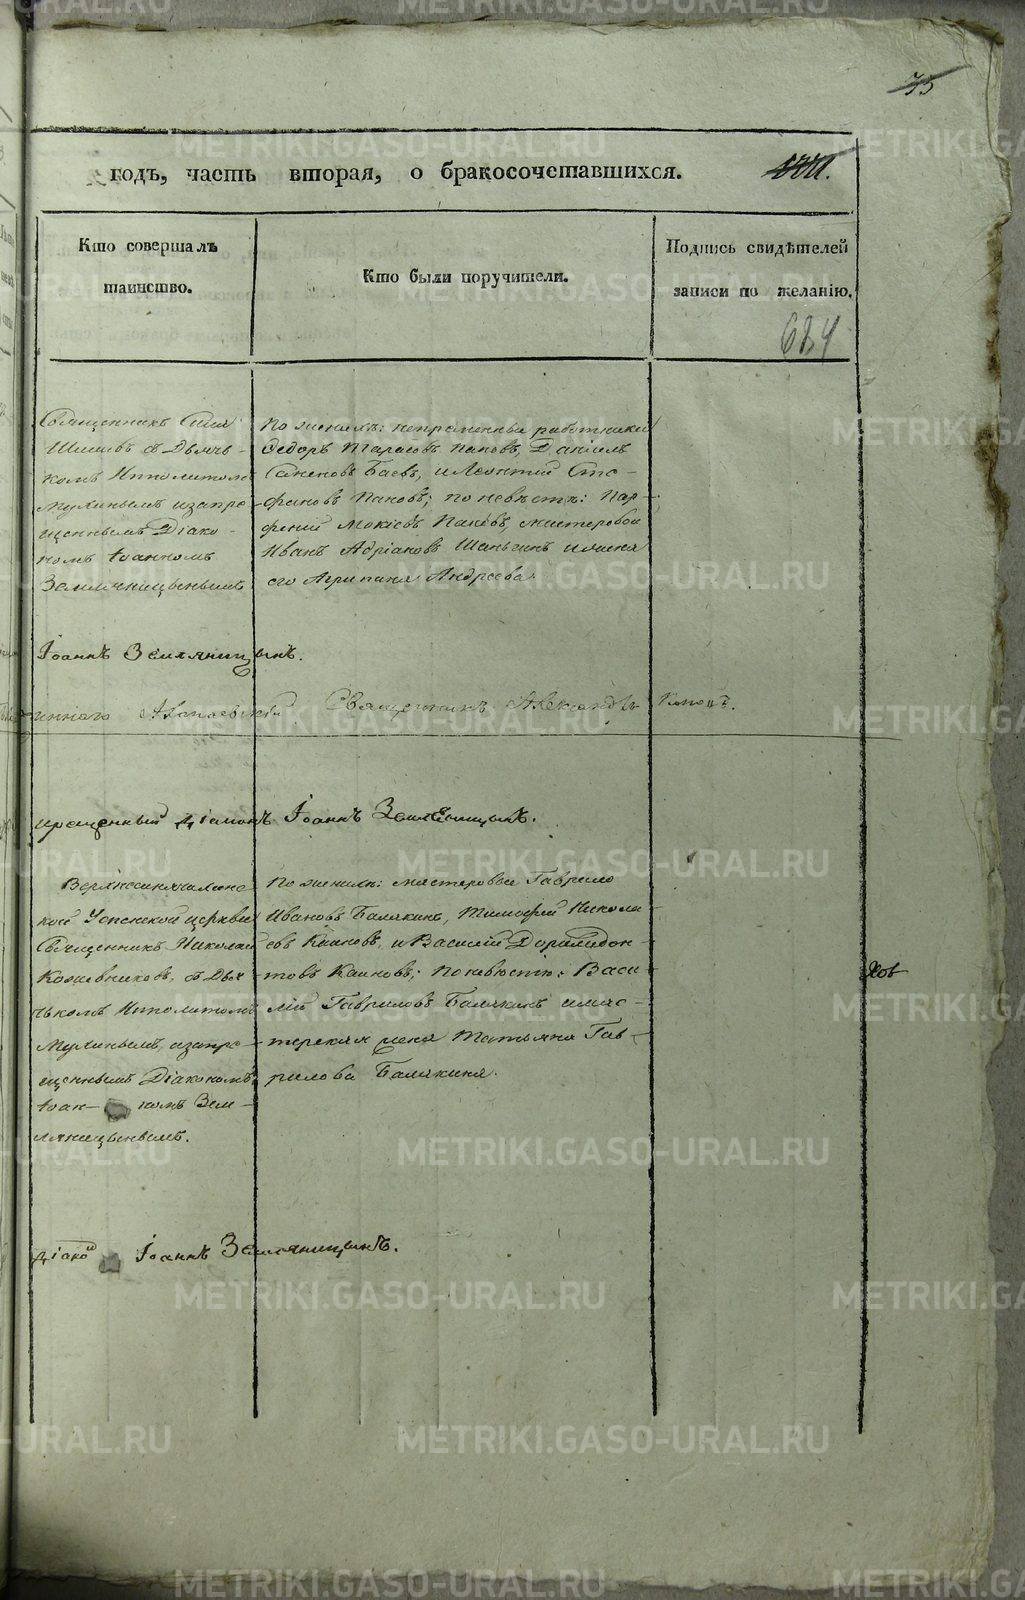 75
годъ, часть вторая, о бракосочетавшихся.
Кто совершалъ
таинство.
Кто были поручители.
Подпись свидѣтелей
записи по желанію.
684
Священникъ
Шишевъ съ Дьячь-
комъ Ипполитомъ
Мухинымъ и запре-
щеннымъ Діако-
номъ Іоанномъ
Земляницынымъ
По женихѣ: непременные работники
Ѳедоръ Тарасовъ Пановъ, Данiилъ
Баевъ, и Леонтий Сте-
фановъ Пановъ; по невѣстѣ: Пар-
фений Мокиевъ Пановъ, мастеровой
Иванъ Адріановъ и жена
его Агрипина Андреева
Іоаннъ Земляницынъ.
Алапаевской Священникъ Александръ Поповъ.
прещенный Діаконъ Іоаннъ Земляницынъ.
Верхнесинячихинс-
кой Успенской церкви
Священникъ Николай
Кожевниковъ, съ Дья
чькомъ Ипполитомъ
Мухинымъ, и запре-
щеннымъ Діакономъ
Іоан- номъ Зем-
ляницынымъ.
По женихѣ: мастеровые Гаврило
Ивановъ Балакинъ, Тимофей Никола-
евъ Каиновъ, и Василий Дормидон-
товъ Каиновъ; по невѣстѣ: Васи-
лій Гавриловъ Балакинъ и мас-
терская жена Татьяна Гав-
рилова Балакина.
Діако Іоаннъ Земляницынъ.